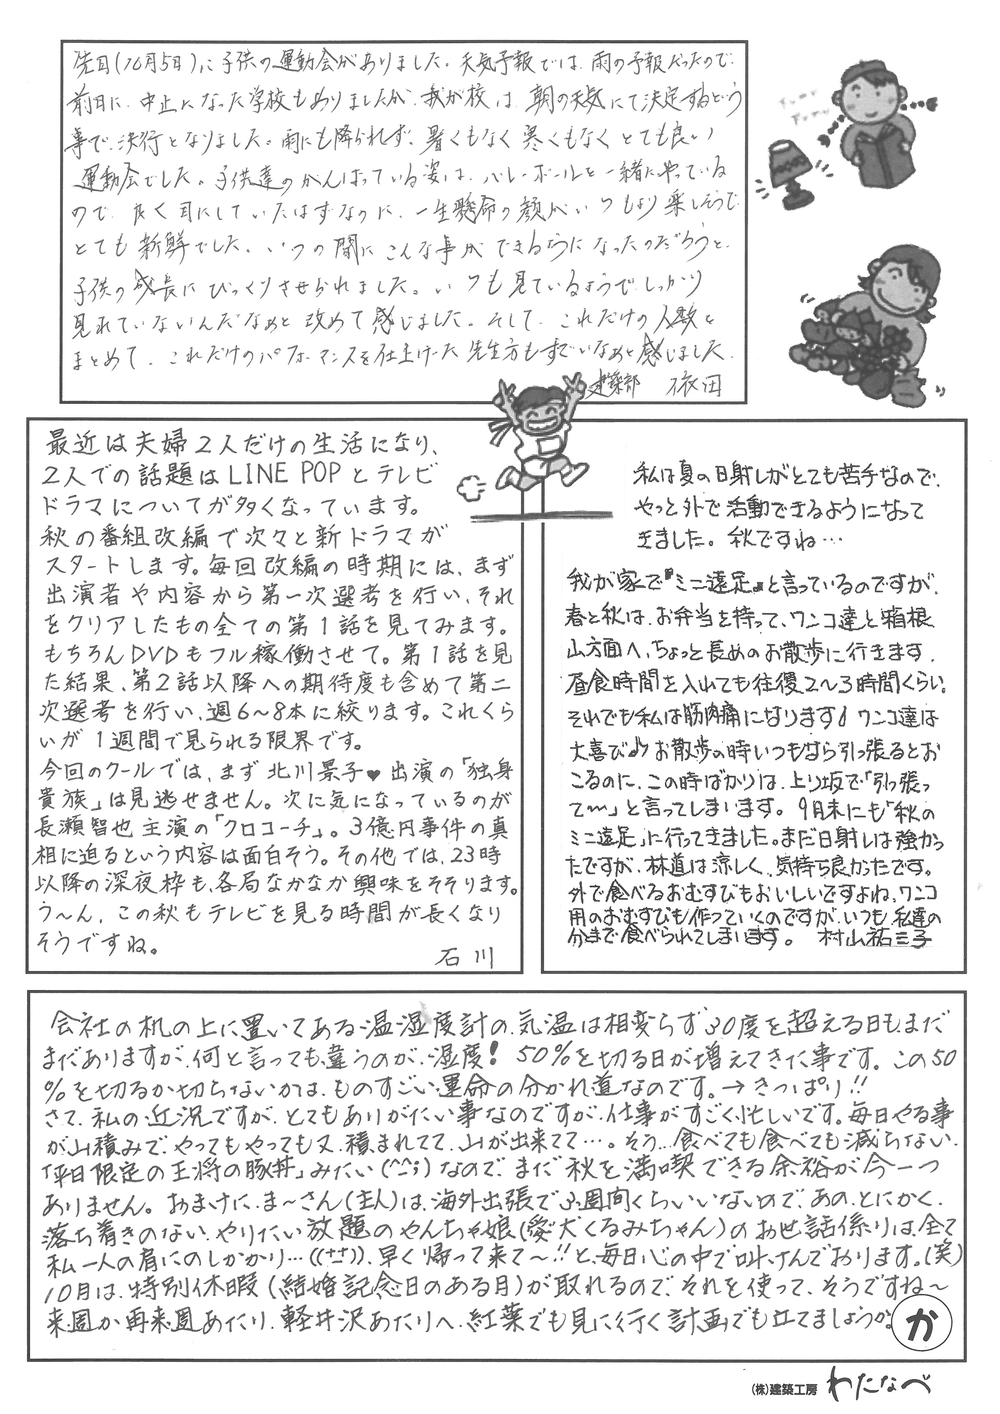 先日(10月5日)に子供の運動会がありました。天気予報では、雨の予報だったので、
前日に、中止になった学校もありましたが、我が校は、朝の天気にて決定するという
事で、決行となりました。雨にも降られず、暑くもなく寒くもなくとても良い
運動会でした。子供達のがんばっている姿は、バレーボールを一緒にやっている
ので、良く目にしていたはずなのに、一生懸命の顔がいつもより楽しそうで
とても新鮮でした。いつの間にこんな事ができるようになったのだろうと、
子供の成長にびっくりさせられました。いつも見ているようでしっかり
見れていないんだなぁと改めて感じました。そして、これだけの人数を
まとめて、これだけのパフォーマンスを仕上げた先生方もすごいなぁと感じました。
建築部 依田
最近は夫婦2人だけの生活になり、
2人での話題はLINE POPとテレビ
ドラマについてが多くなっています。
秋の番組改編で次々と新ドラマが
スタートします。毎回改編の時期には、まず
出演者や内容から第一次選考を行い、それ
をクリアしたもの全ての第1話を見てみます。
もちろんDVDもフル稼働させて。第1話を見
た結果、第2話以降への期待度も含めて第二
次選考を行い、週6〜8本に絞ります。これくら
いが1週間で見られる限界です。
今回のクールでは、まず北川景子♥出演の「独身
貴族」は見逃せません。次に気になっているのが
長瀬智也主演の「クロコーチ」。3億円事件の真
相に迫るという内容は面白そう。その他では、23時
以降の深夜枠も、各局なかなか興味をそそります。
う〜ん、この秋もテレビを見る時間が長くなり
そうですね。
石川
私は夏の日射しがとても苦手なので、
やっと外で活動できるようになって
きました。秋ですね…
我が家で『ミニ遠足』と言っているのですが、
春と秋は、お弁当を持って、ワンコ達と箱根
山方面へ、ちょっと長めのお散歩に行きます。
昼食時間を入れても往復2〜3時間くらい。
それでも私は筋肉痛になります! ワンコ達は
大喜び♪ お散歩の時いつもなら引っ張るとお
こるのに、この時ばかりは、上り坂で「引っ張っ
て〜」と言ってしまいます。9月末にも「秋の
ミニ遠足」に行ってきました。まだ日射しは強かっ
たですが、林道は涼しく、気持ち良かったです。
外で食べるおむすびもおいしいですよね。ワンコ
用のおむすびも作っていくのですが、いつも、私達の
分まで食べられてしまいます。 村山祐三子
会社の机の上に置いてある温湿度計の、気温は相変らず30度を超える日もまだ
まだありますが、何と言っても違うのが、湿度! 50%を切る日が増えてきた事です。この50
%を切るか切らないかは、ものすごい運命の分かれ道なのです。→きっぱり!!
さて、私の近況ですが、とてもありがたい事なのですが、仕事がすごく忙しいです。毎日やる事
が山積みで、やってもやっても又、積まれてて、山が出来てて…。そう、食べても食べても減らない、
「平日限定の王将の豚丼」みたい(^^;)なので、まだ秋を満喫できる余裕が今一つ
ありません。おまけに、ま〜さん(主人)は、海外出張で3週間くらいいないので、あの、とにかく、
落ち着きのない、やりたい放題のやんちゃ娘(愛犬くるみちゃん)のお世話係りは、全て
私一人の肩にのしかかり…((++))、早く帰って来て〜!!と、毎日心の中で叫んでおります。(笑)
10月は、特別休暇(結婚記念日のある月)が取れるので、それを使って、そうですね〜
来週か再来週あたり、軽井沢あたりへ、紅葉でも見に行く計画でも立てましょうか。 か
(株)建築工房 わたなべ